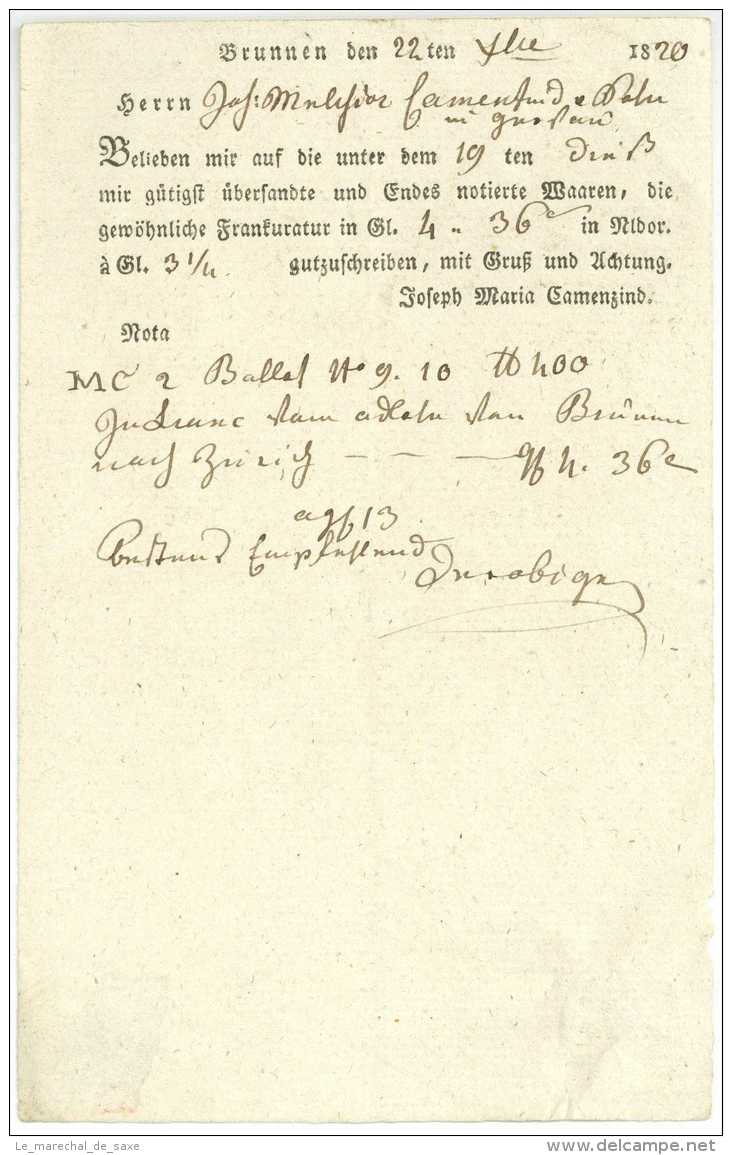 Brunnen den 22ten Xbre 1820
Herrn Jos: Melchior Camenzind & Sohn
in Gersau
Belieben mir auf die unter dem 19 ten dieß
mir gütigst übersandte und Endes notierte Waaren, die
gewöhnliche Frankuratur in Gl. 4 " 36 in Nldor.
à Gl. 3 1/4. gutzuschreiben, mit Gruß und Achtung.
Joseph Maria Camenzind.
Nota
MC 2 Ballot No 9. 10 ℔ 400
von Brunnen
nach Zürich - - - 4. 36
13
bestens Empfehlend
Der obige
Le_marechal_de_saxe
delcampe.net